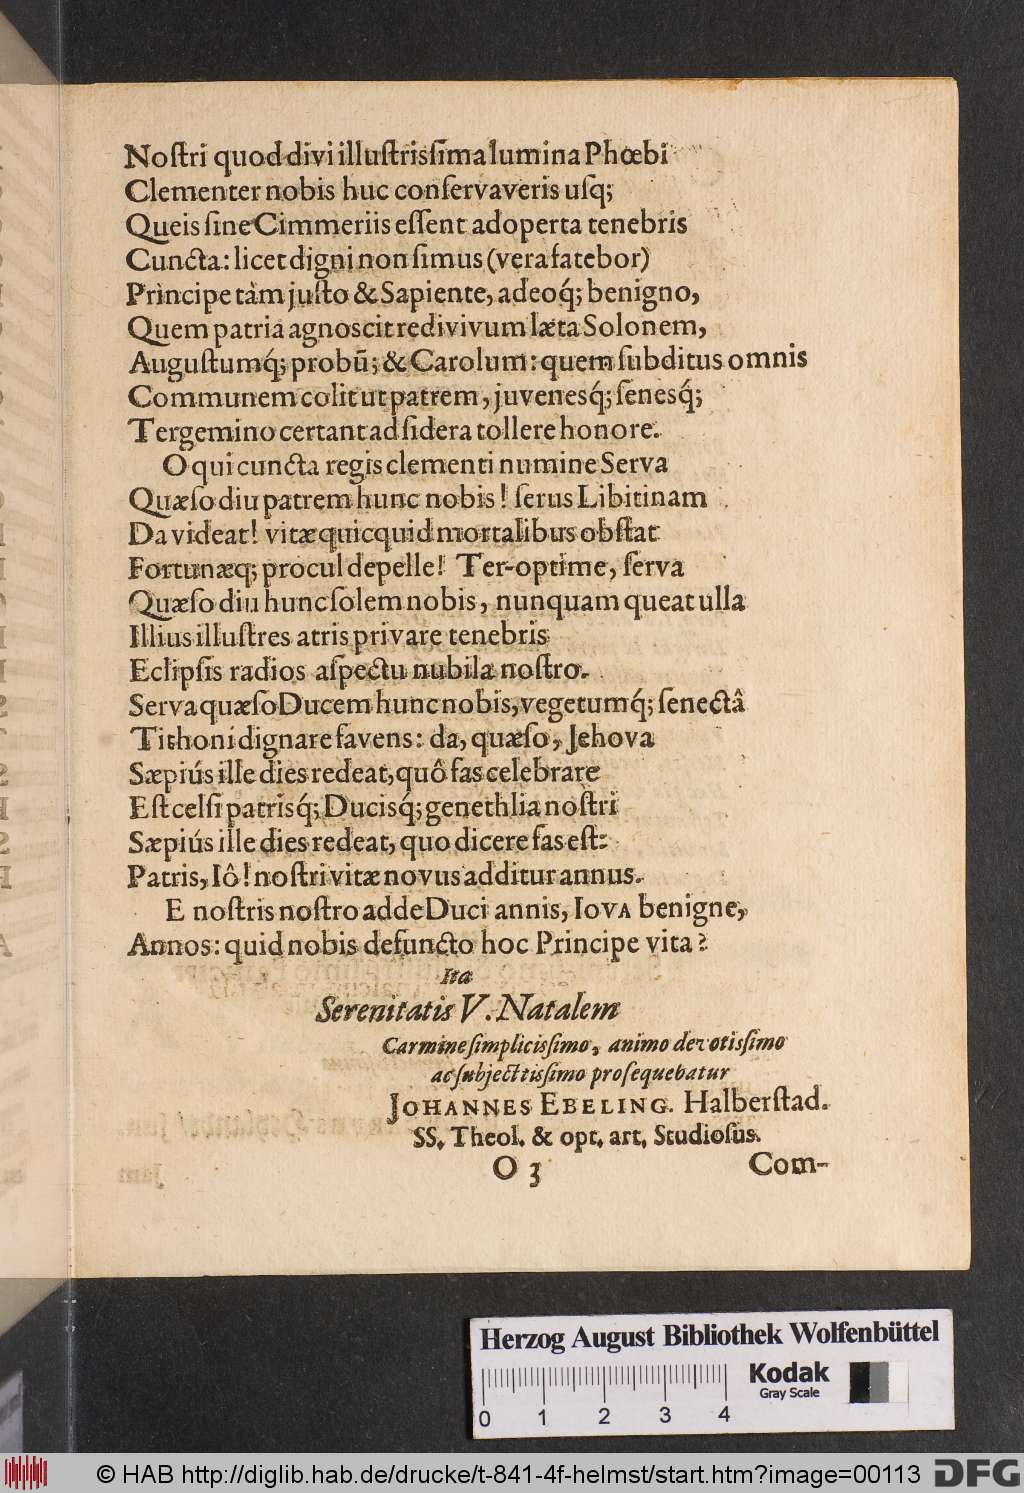 Noſtri quod divi illuſtrisſima lumina Phœbi
Clementer nobis huc conſervaveris uſq;
Queis ſine Cimmeriis eſſent adoperta tenebris
Cuncta: licet digni non ſimus (vera fatebor)
Principe tàm juſto & Sapiente, adeoq́; benigno,
Quem patria agnoscit redivivum læta Solonem,
Auguſtumq́; probū; & Carolum: quem ſubditus omnis
Communem colit ut patrem, juvenesq́; ſenesq́;
Tergemino certant ad ſidera tollere honore.
O qui cuncta regis clementi numine Serva
Quæſo diu patrem hunc nobis! ſerus Libitinam
Da videat! vitæ quicquid mortalibus obſtat
Fortunæq; procul depelle! Ter-optime, ſerva
Quæſo diu hunc ſolem nobis, nunquam queat ulla
Illius illuſtres atris privare tenebris
Eclipſis radios aſpectu nubila noſtro.
Serva quæſo Ducem hunc nobis, vegetumq́; ſenectâ
Tithoni dignare favens: da, quæſo, Jehova
Sæpiús ille dies redeat, quô fas celebrare
Eſt celſi patrisq́; Ducisq́; genethlia noſtri
Sæpiús ille dies redeat, quo dicere fas eſt:
Patris, Iô! noſtri vitæ novus additur annus.
E noſtris noſtro adde Duci annis, IOVA benigne,
Annos: quid nobis defuncto hoc Principe vita?
Ita
Serenitatis V. Natalem
Carmine ſimplicisſimo, animo devotisſimo
ac ſubjectisſimo proſequebatur
JOHANNES EBELING. Halberſtad.
SS. Theol. & opt. art. Studioſus.
O 3 Com-
Herzog August Bibliothek Wolfenbüttel
Kodak
Gray Scale
0 1 2 3 4
© HAB http://diglib.hab.de/drucke/t-841-4f-helmst/start.htm?image=00113 DFG